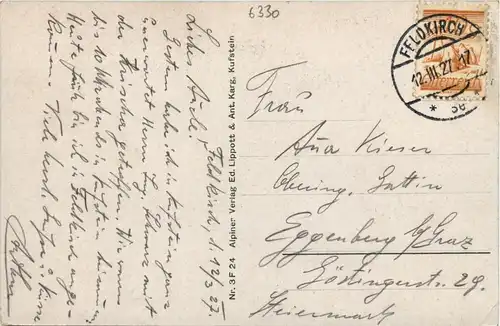 6330
FELDKIRCH
12.III.27.17
* 3e
Feldkirch, d. 12/3 27.
Liebes Auerl!
Gestern habe ich in Kufstein ganz
unerwartet Herrn Ing. Schwarz mit
der getroffen. Wir waren
bis 10 Uhr abends in Kufstein
Heute früh bin ich in Feldkirch ange-
kommen. Viele herzl. Grüße u. Küsse
Nr. 3 F 24 Alpiner Verlag Ed. Lippott & Ant. Karg, Kufstein
Frau
Aua Kieser
Obering. Gattin
Eggenberg b/Graz
Göstingerstr. 29.
Steiermark